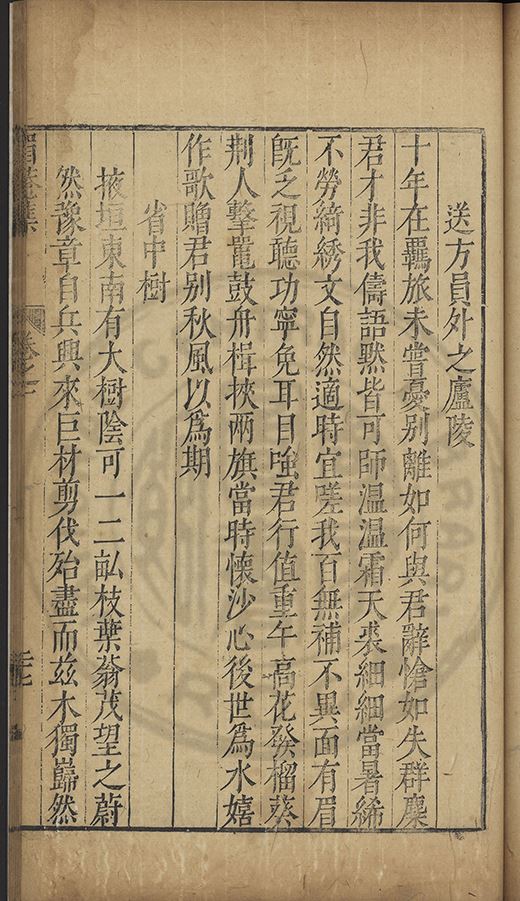 送方員外之廬陵
十年在羈旅未嘗憂别離如何與君辭愴如失群麋
君才非我儔語黙皆可師温温霜天裘細細當暑絺
不勞綺綉文自然適時宜嗟我百無補不異面有眉
旣乏視聽功寧免耳目嗤君行值重午高花發榴葵
荆人擊鼉鼓舟楫挾兩旗當時懷沙心後世爲水嬉
作歌贈君别秋風以爲期
省中樹
掖垣東南有大樹陰可一二畝枝葉蓊茂望之蔚
然豫章自兵興來巨材剪伐殆盡而兹木獨巋然
眉菴集
卷之一
三七